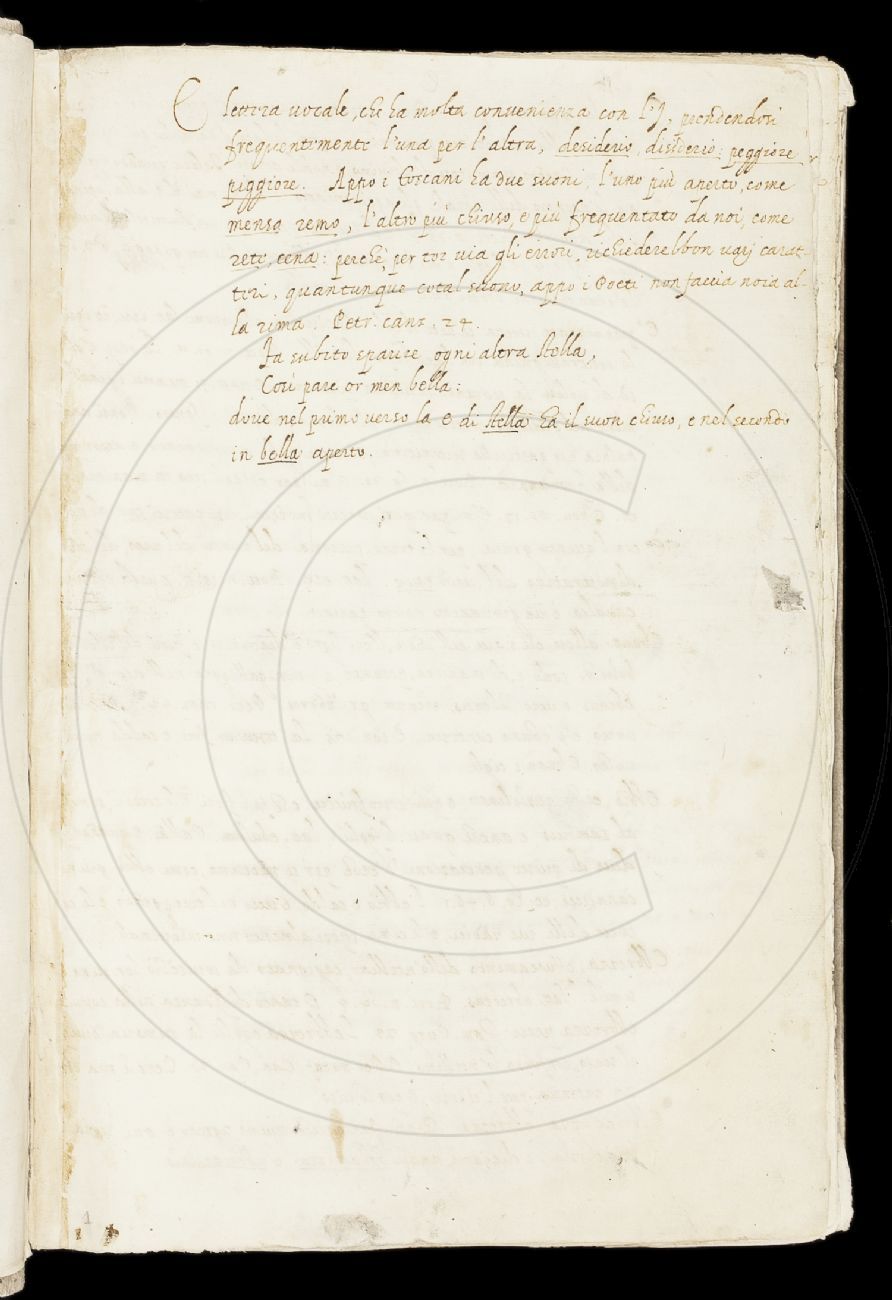 E lettera vocale, che ha molta convenienza con l'J, prendendosi
frequentemente l'una per l'altra, desiderio, disiderio: peggiore
piggiore. Appo i Toscani ha due suoni, l'uno più aperto, come
mensa remo, l'altro più chiuso, e più frequentato da noi, come
rete, cena: perchè, per tor via gli errori, richiederebbon varj carat-
teri, quantunque cotal suono, appo i Poeti non faccia noia al-
la rima. Petr. canz. 24.
Fa subito sparire ogni altra stella,
Così pare or men bella:
dove nel primo verso la e di stella ha il suon chiuso, e nel secondo
in bella aperto.
1